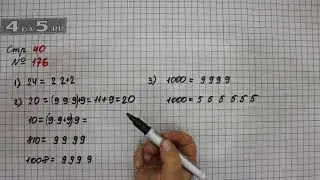 4da5.RU
Стр 40
№ 176
1) 24 = 2 2+2
2) 20 = (9 9:9)+9 = 11+9=20
10=(9 9+9):9 =
810= 9 9 9 9
1008= 9 9 9 9
3) 1000 = 9 9 9 9
1000 = 5 5 5 5 5 5